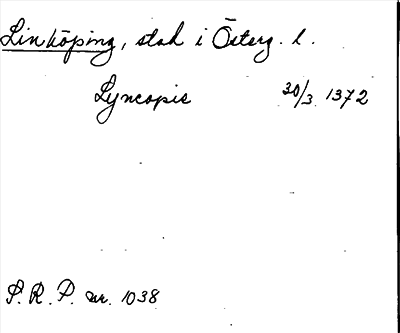 Linköping, stad i Österg. l.
Lyncopis 30/3 1372
S. R. P. nr. 1038